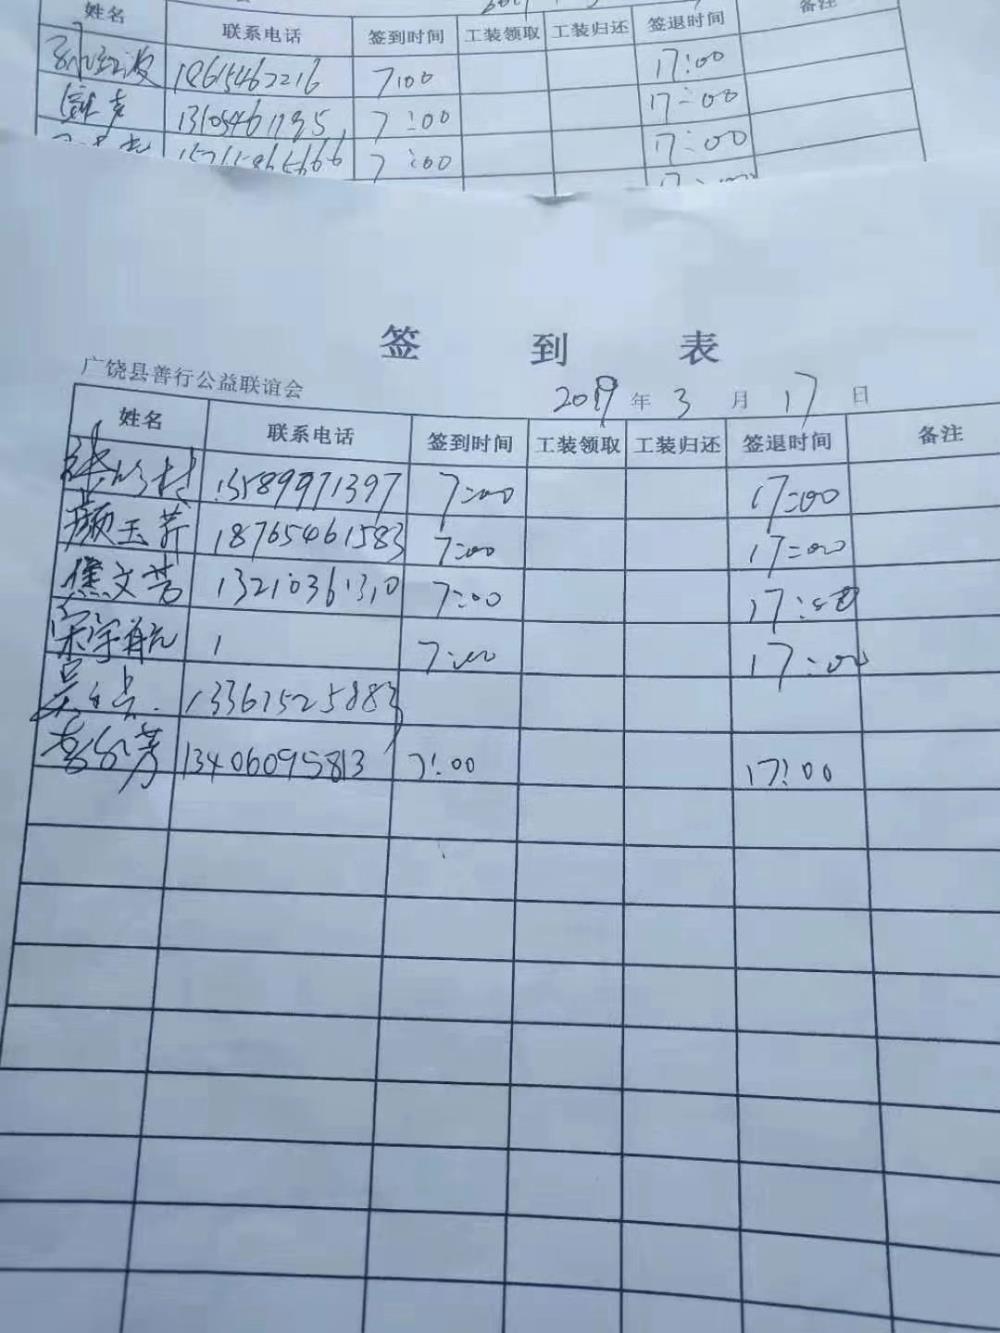 姓名 联系电话 签到时间 工装领取 工装归还 签退时间 备注
7:00 17:00
7:00 17:00
7:00 17:00
签到表
广饶县善行公益联谊会 2019年3月17日
姓名 联系电话 签到时间 工装领取 工装归还 签退时间 备注
13589971397 7:00 17:00
颜玉芹 18765461583 7:00 17:00
焦文芳 13210361310 7:00 17:00
宋宇航 1 7:00 17:00
13361525883
13406095813 7:00 17:00